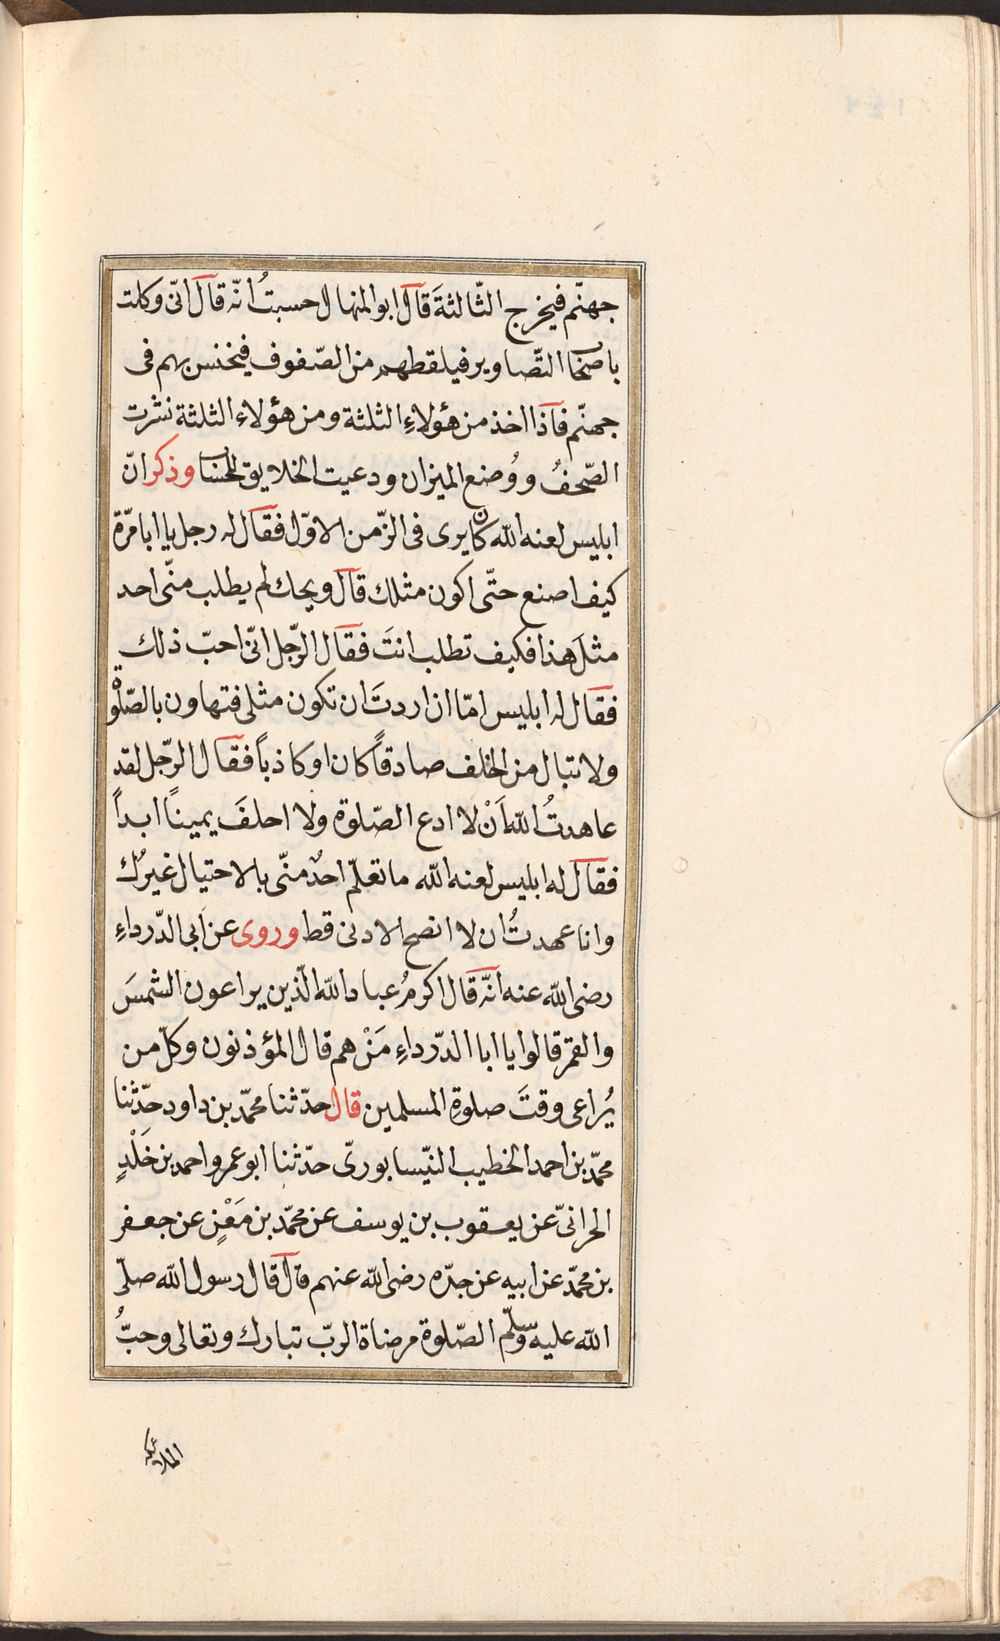 جهنّم فيخرج الثّالثةَ قال ابو المنهال حسبتُ انّه قال انّى وكلت
باصحاب التّصاوير فيلقطهم من الصّفوف فيخنس بهم فى
جهنّم فاذا اخذ من هؤلاءِ الثلثة ومن هؤلاء الثلثة نشرت
الصّحفُ ووُضنع الميزان ودعيت الخلايق للحساب وذكر انّ
ابليس لعنه الله كان يرى فى الزّمن الاوّل فقال له رجل يا ابا مرّة
كيف اصنع حتّى اكون مثلك قال ويحك لم يطلب منّى احد
مثلَ هذا فكيف تطلب انتَ فقال الرّجل انّى احبّ ذلك
فقال له ابليس امّا ان اردتَ ان تكون مثلى فتهاون بالصّلوة
ولا تبال من الحلف صادقاً كان او كاذباً فقال الرّجل لقد
عاهدتُ الله اَنْ لا ادع الصّلوة ولا احلفَ يميناً ابداً
فقال له ابليس لعنه الله ما تعلّم احدٌ منّى بالاحتيال غيرُك
وانا عهدتُ ان لا انصح الادنى قط وروى عن ابى الدّرداءِ
رضى الله عنه انّه قال اكرمُ عباد الله الّذين يراعون الشمسَ
والقمر قالوا يا ابا الدّرداءِ مَنْ هم قال المؤذنون وكلّ من
يُراعى وقتَ صلوةِ المسلمين قال حدّثنا محمّد بن داود حدّثنا
محمّد بن احمد الخطيب النّيسابورىّ حدّثنا ابو عمرو احمد بن خَلَدٍ
الحرانىّ عن يعقوب بن يوسف عن محمّد بن مَعْنٍ عن جعفر
بن محمّد عن ابيه عن جدّه رضى الله عنهم قال قال رسول الله صلّى
الله عليه وسلّم الصّلوة مرضاة الربّ تبارك وتعالى وحبُّ
الملائكة